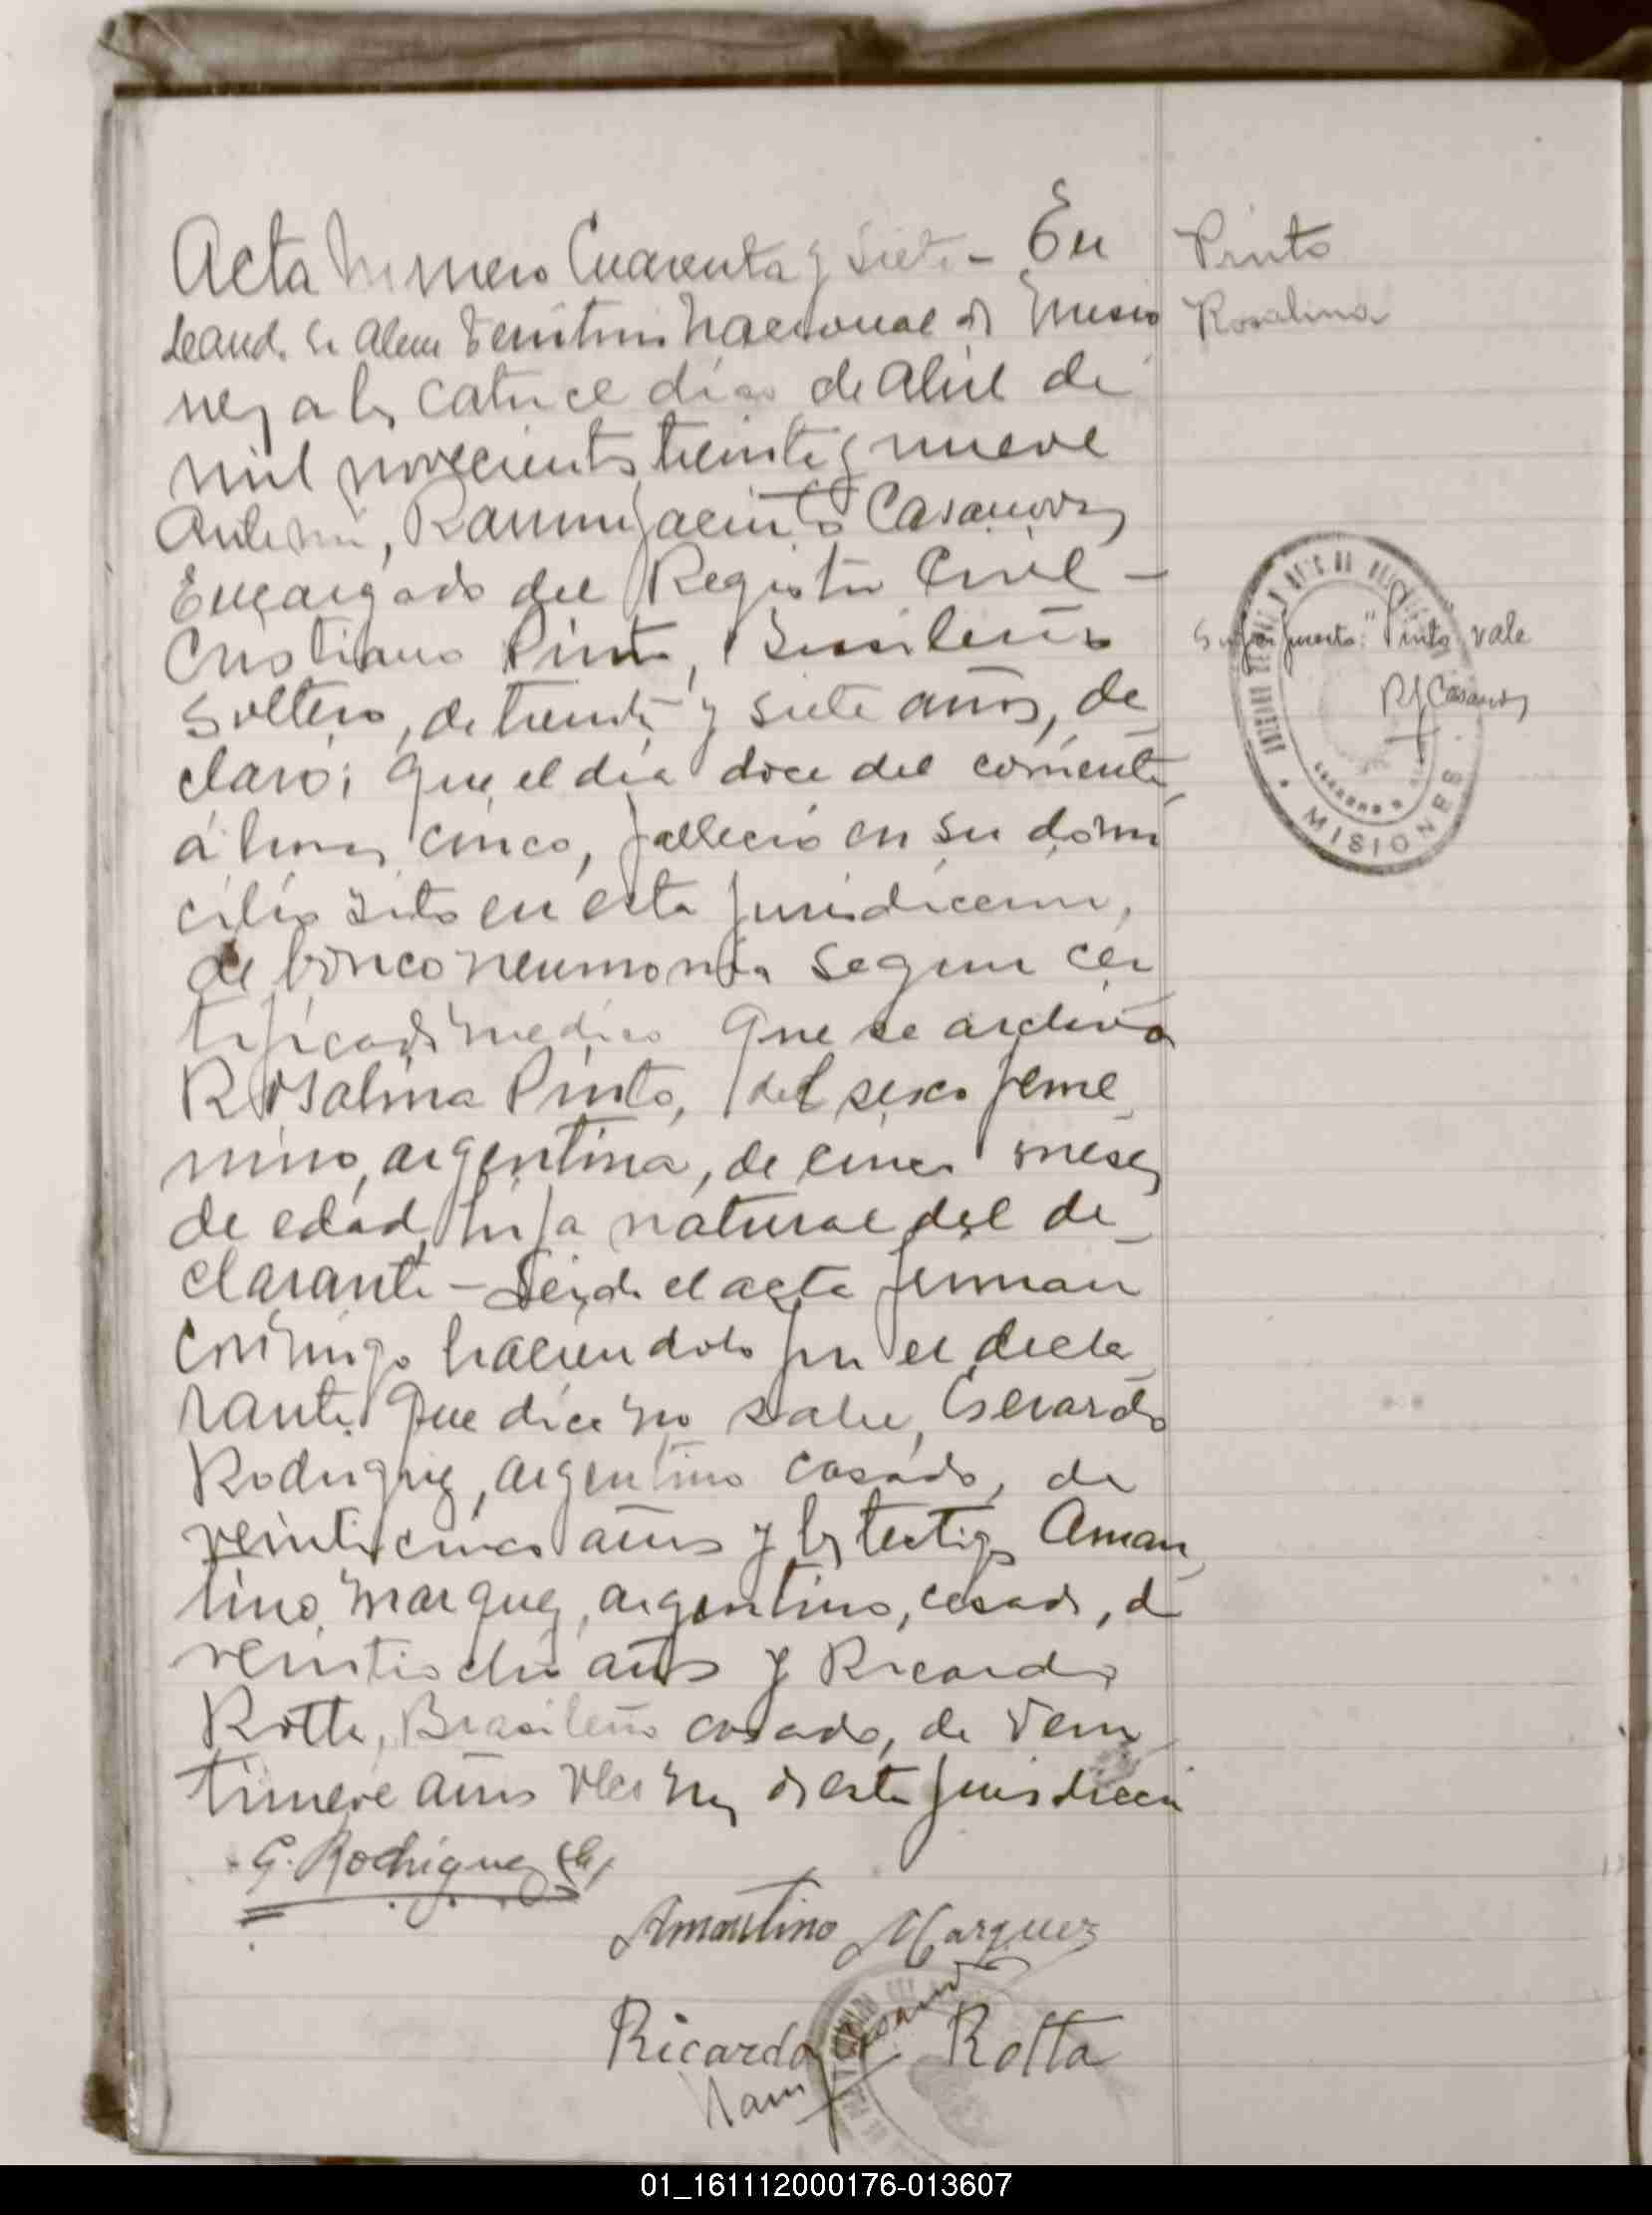 Acta Numero Cuarenta y Siete - En
Leand. N. Alem Territorio Nacional de Misio
nes a los catorce dias de Abril de
mil novecientos treinta y nueve
Ante mi, Ramon Jacinto Casanova,
Encargado del Registro Civil -
Cristiano Pinto, Brasileño
soltero, de treinta y siete años, de
claró; Que, el dia doce del corriente
á horas cinco, falleció en su domi
cilio sito en esta jurisdiccion,
de bronconeumonia segun cer
tificado medico que se archiva
Rosalina Pinto, del sexo feme
nino, argentina, de cinco meses
de edad, hija natural del de_
clarante - Leida el acta firman
conmigo haciendolo por el decla
rante que dice no saber, Gerardo
Rodriguez, argentino casado, de
veinticinco años y los testigos Aman
tino Marquez, argentino, casado, de
veintiocho años y Ricardo
Rotta, Brasileño casado, de vein
tinueve años vecinos de esta jurisdiccion
G. Rodriguez (h)
Amantino Marquez
Ricardo Rotta
Ram J Casanova
Pinto
Rosalina
Sobre puesto: "Pinto" vale
RJCasanova
MISIONES
01_161112000176-013607